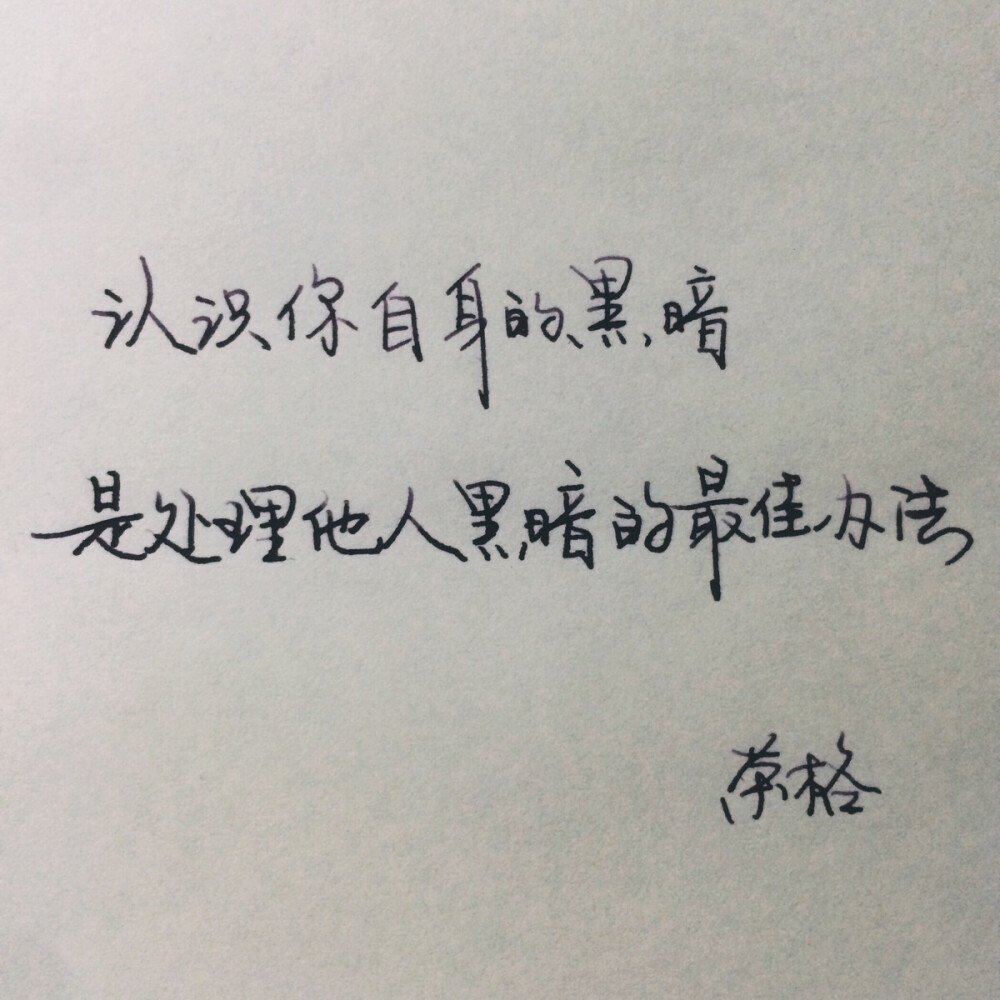 认识你自身的黑暗
是处理他人黑暗的最佳办法
荣格